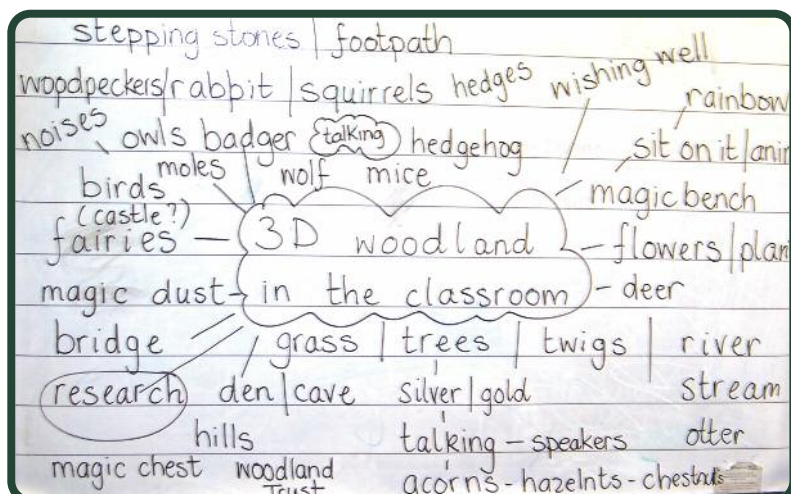 stepping stones | footpath
woodpeckers/rabbit | squirrels hedges wishing well
rainbow
noises owls badger talking hedgehog sit on it/
birds moles wolf mice magic bench
(castle?)
fairies - 3D woodland - flowers/
magic dust - in the classroom - deer
bridge grass | trees | twigs | river
research den/cave silver/gold stream
hills talking - speakers otter
magic chest woodland acorns - hazelnts - chestnuts
Trust